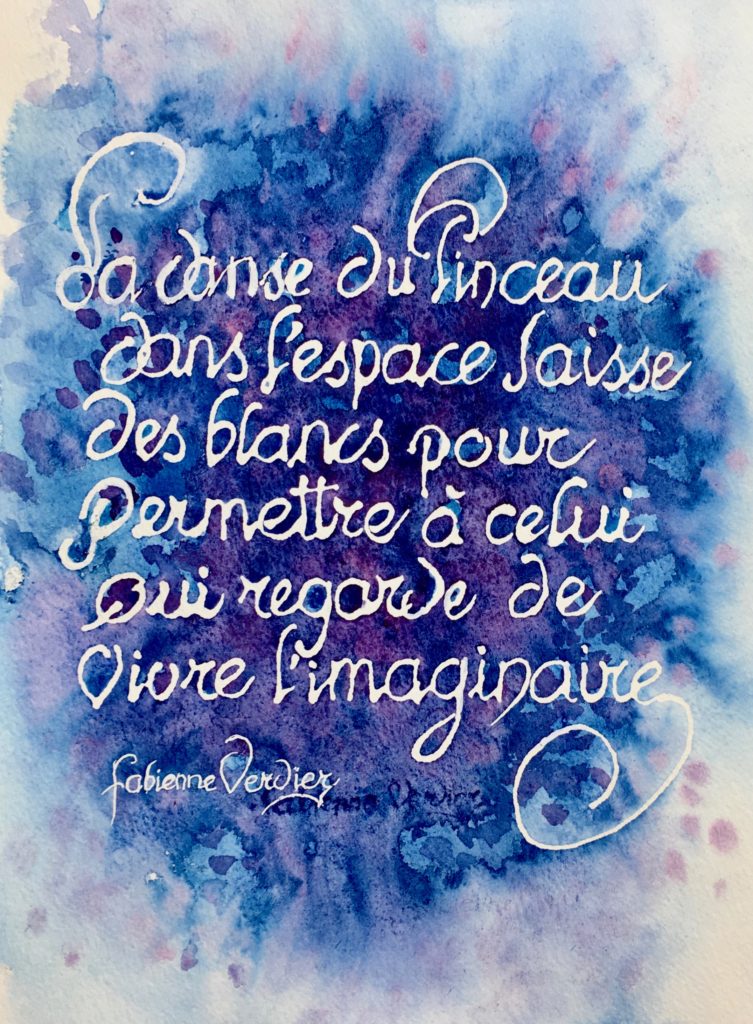 La danse du Pinceau
dans l'espace laisse
des blancs pour
Permettre à celui
qui regarde de
Vivre l'imaginaire
Fabienne Verdier
Fabienne Verdier